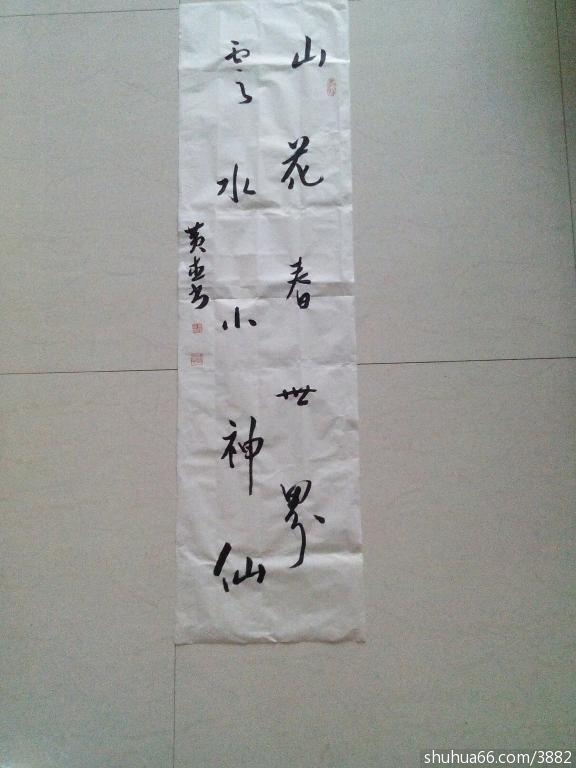 山花春世界
雲水小神仙
黄書
shuhua66.com/3882